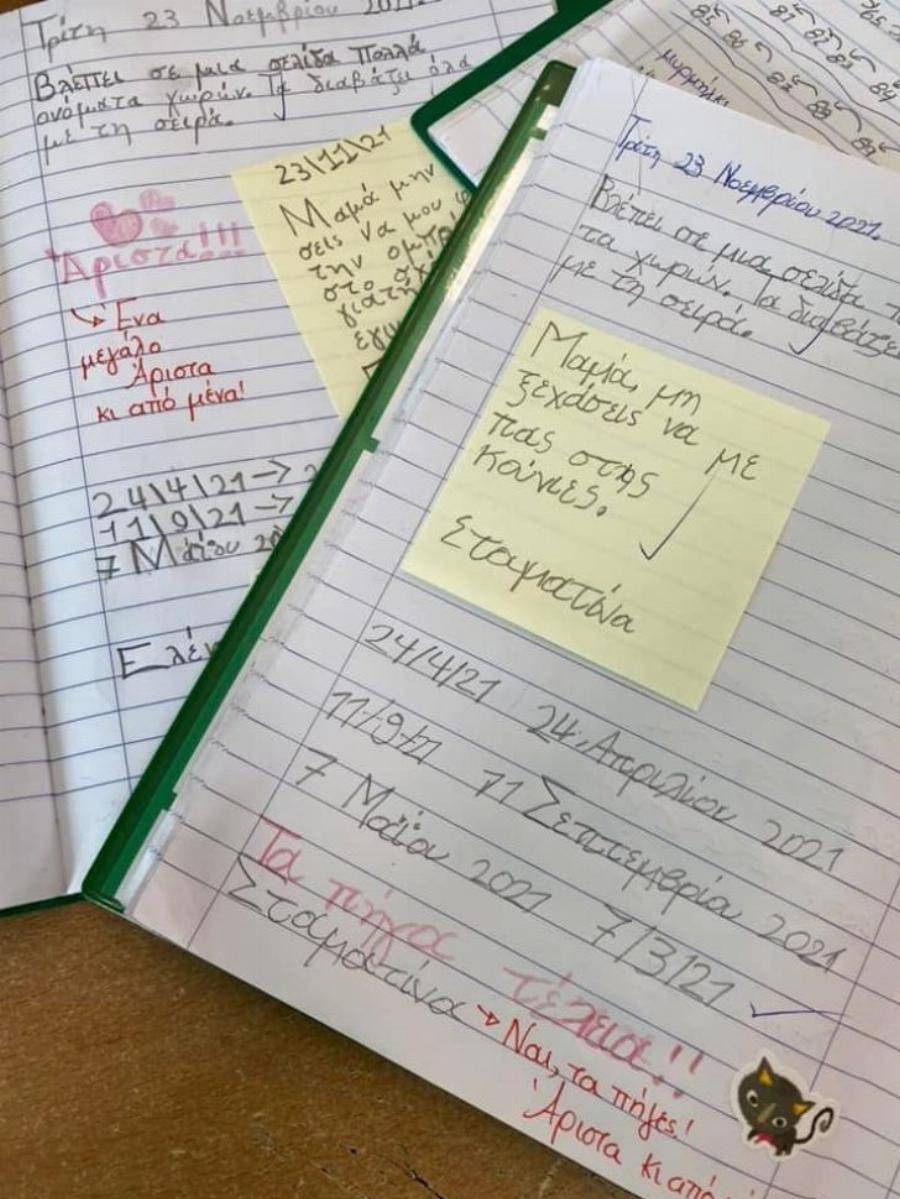 Τρίτη 23 Νοεμβρίου
Βλέπει σε μια σελίδα πολλά
ονόματα χωριών. Τα διαβάζει όλα
με τη σειρά.
Άριστα!!!
Ένα
μεγάλο
Άριστα
κι από μένα!
24\4\21→
11\9\21→
7 Μαΐου
Ελέν
23\11\21
Μαμά μην
σεις να μου
την ομπρ
στο σχ
γιατί
εγω
85
86
81
82
83
84
μυρμήγκι
Τρίτη 23 Νοεμβρίου 2021
Βλέπει σε μια σελίδα
τα χωριών. Τα διαβάζει
με τη σειρά.
Μαμά, μη
ξεχάσεις να με
πας στης
κούνιες.
Σταματίνα
24/4/21 24 Απριλίου 2021
11/9/21 11 Σεπτεμβρία 2021
7 Μαΐου 2021 7/3/21
Τα πήγα τέλεια!!
Σταματίνα
Ναι, τα πήγες!
Άριστα κι από